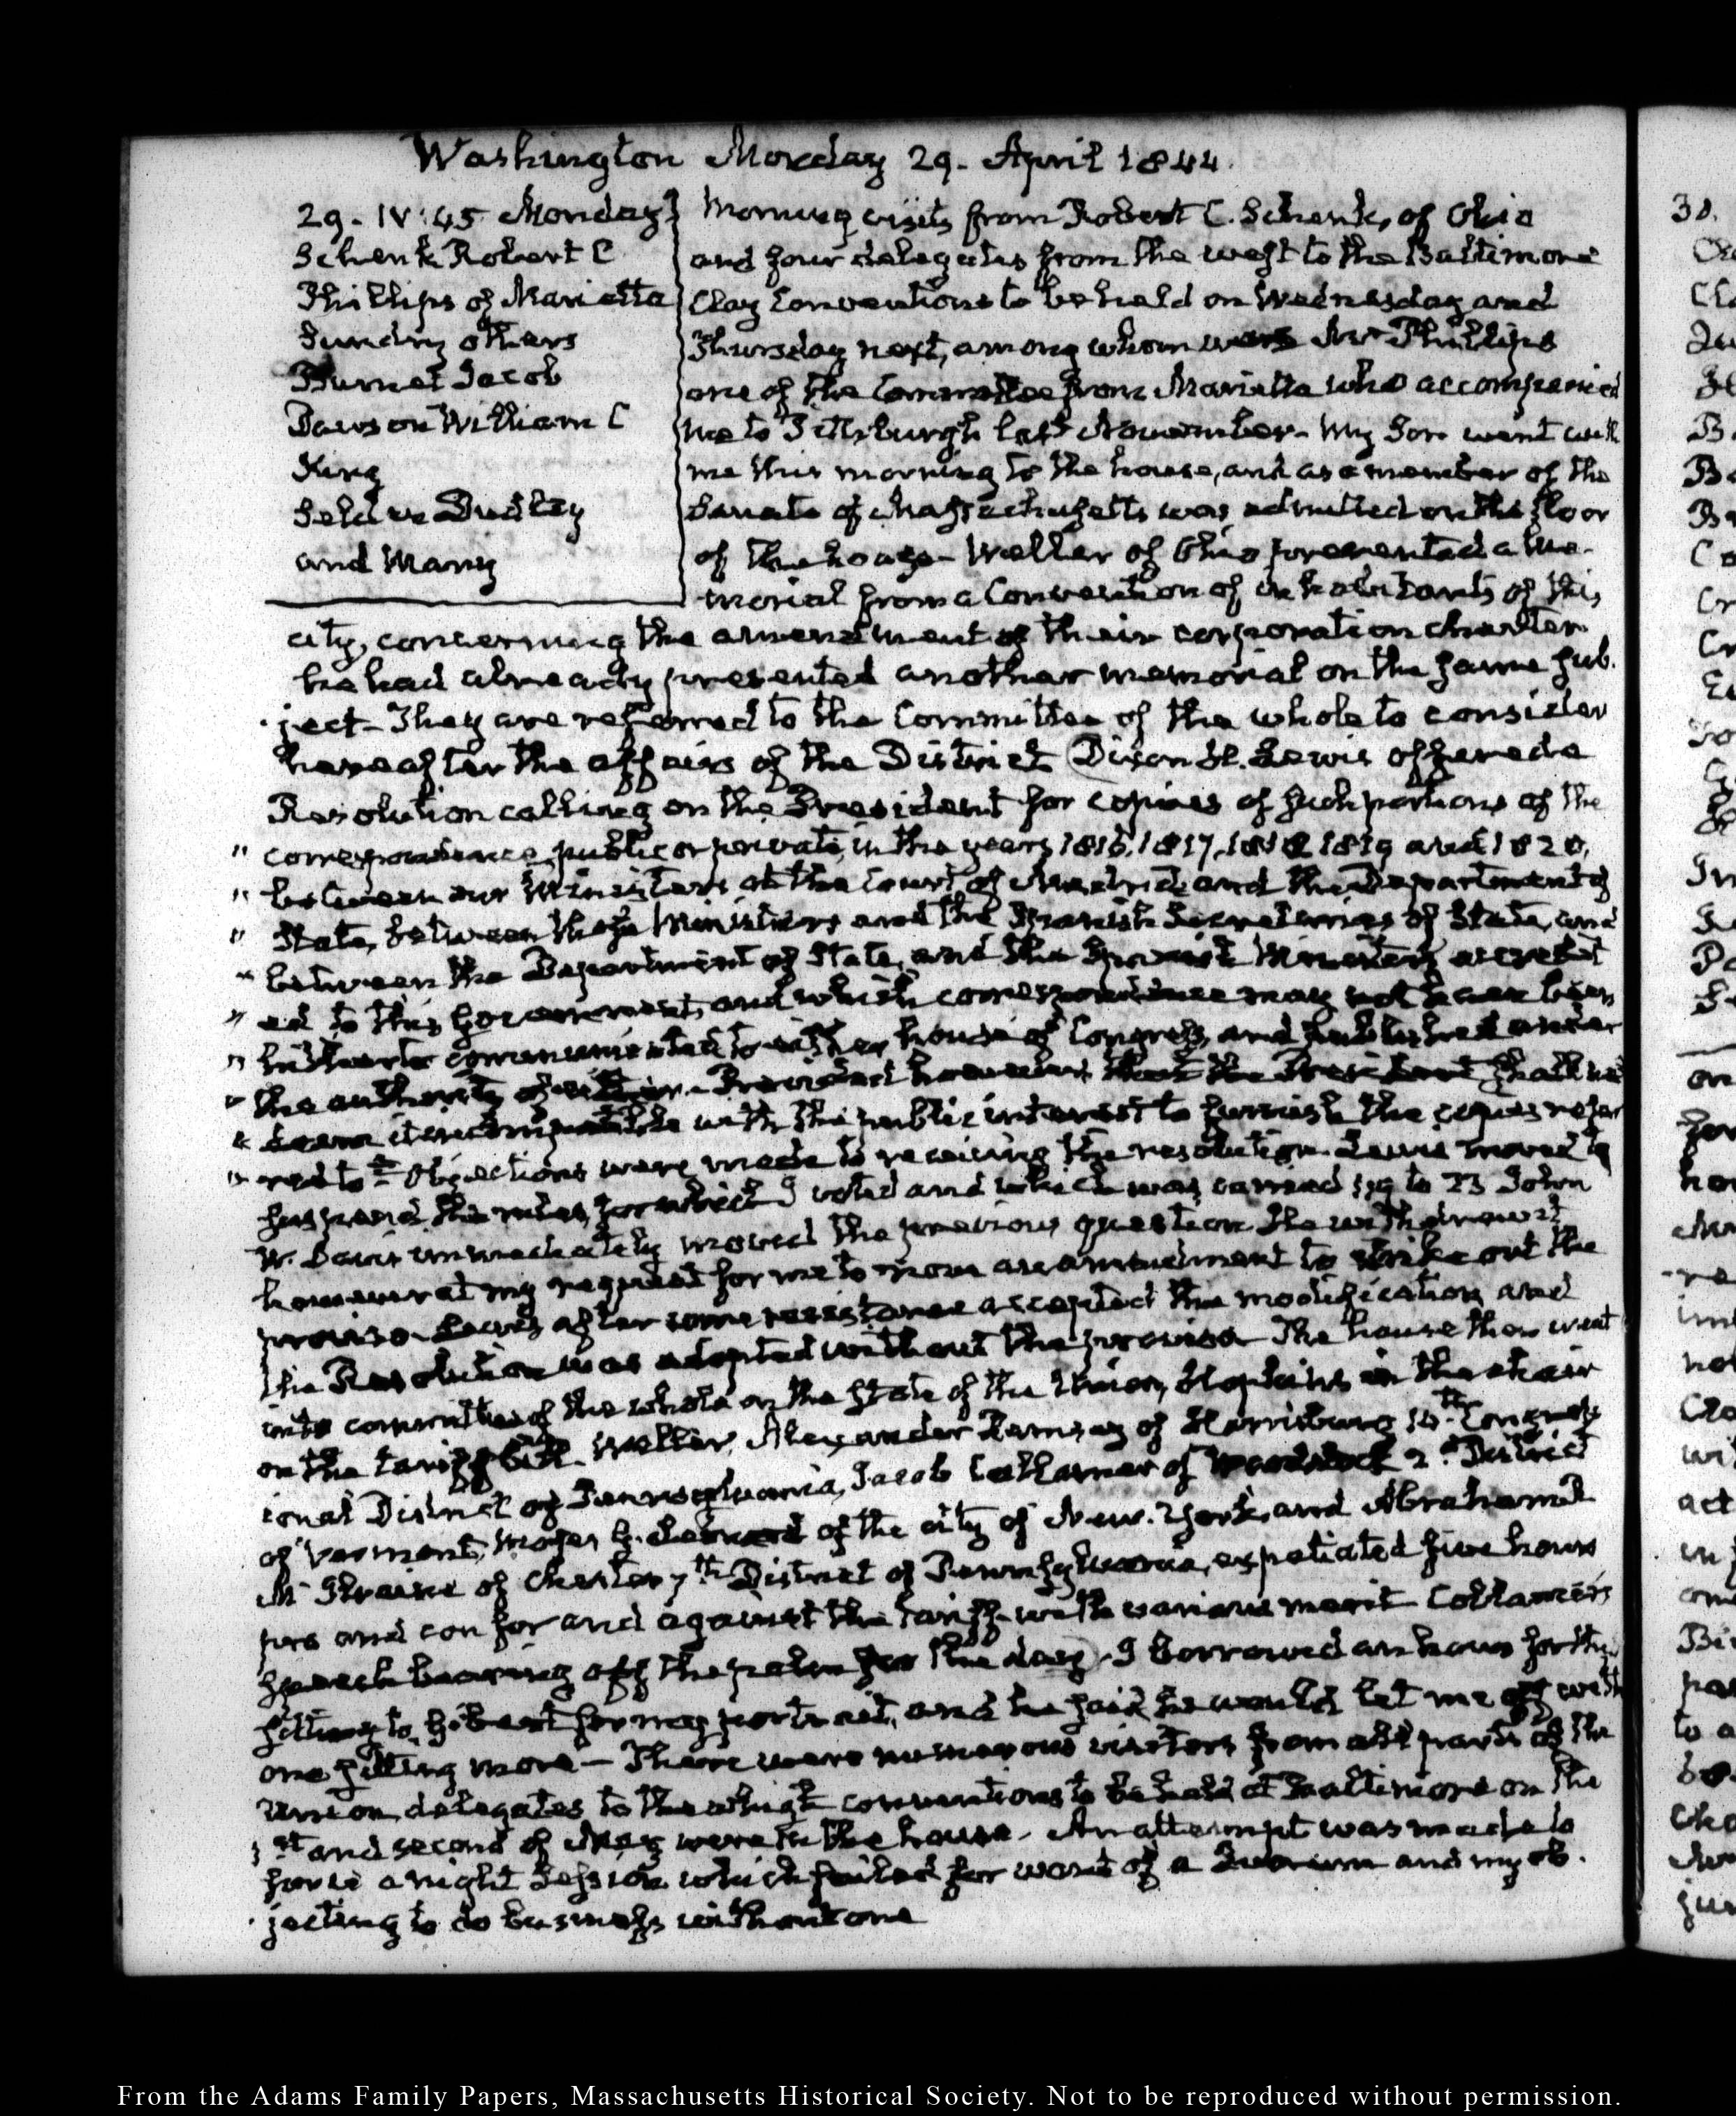 Washington Monday 29. April 1844.
29. IV:45 Monday
Schenk Robert C
Phillips of Marietta
Sundry others
Burnet Jacob
Dawson William C
King
Selden Dudley
and Many
Morning visits from Robert C. Schenk, of Ohio
and four delegates from the west to the Baltimore
Clay Conventions to be held on Wednesday and
Thursday next, among whom were Mr Phillips
one of the Committee from Marietta who accompanied
me to Pittsburgh last November. My Son went with
me this morning to the house, and as a member of the
Senate of Massachusetts was admitted on the floor
of the house. Weller of Ohio presented a me-
-morial from a Convention of inhabitants of this
city, concerning the amendment of their corporation charter
he had already presented another memorial on the same sub.
-ject. They are referred to the Committee of the whole to consider
hereafter the affairs of the District (Dixon H. Lewis offered a
Resolution calling on the President for copies of such portions of the
" correspondence, public or private, in the years 1816, 1817, 1818 1819 and 1820,
" between our Ministers at the Court of Madrid and the Department of
" State, between those Ministers and the Spanish Secretaries of State, and
" between the Department of State, and the Spanish Ministers accredit
" ed to this government, and which correspondence may not have been
" hitherto communicated to either house of Congress, and published under
" the authority of either. Provided however, that the President shall not
" deem it incompatible with the public interest to furnish the copies refer
" red to = Objections were made to receiving the resolution. Lewis moved to
suspend the rules, for which I voted and which was carried 119 to 23 John
W. Davis immediately moved the previous question. He withdrew it
however at my request for me to move an amendment to strike out the
proviso. Lewis after some resistance accepted the modification and
the Resolution was adopted without the proviso. The house then went
into committee of the whole on the State of the Union, Hopkins in the chair
on the tariff bill. Weller, Alexander Ramsay of Harrisburg 14.th Congress
ional District of Pennsylvania, Jacob Collamer of Woodstock 2.d District
of Vermont, Moses G. Leonard of the city of New-York, and Abraham R
McIlvaine of Chester 7th District of Pennsylvania, expatiated five hours
pro and con for and against the tariff with various merit Collamer's
speech bearing off the palm for the day. I borrowed an hour for the
sitting to for my portrait, and he said he would let me off with
one sitting more — There were numerous visitors from all parts of the
Union, delegates to the whig conventions to be held at Baltimore on the
1st and second of May were in the house. An attempt was made to
force a night Session which failed for want of a Quorum and my ob.
-jecting to do business without one
30.
From the Adams Family Papers, Massachusetts Historical Society. Not to be reproduced without permission.